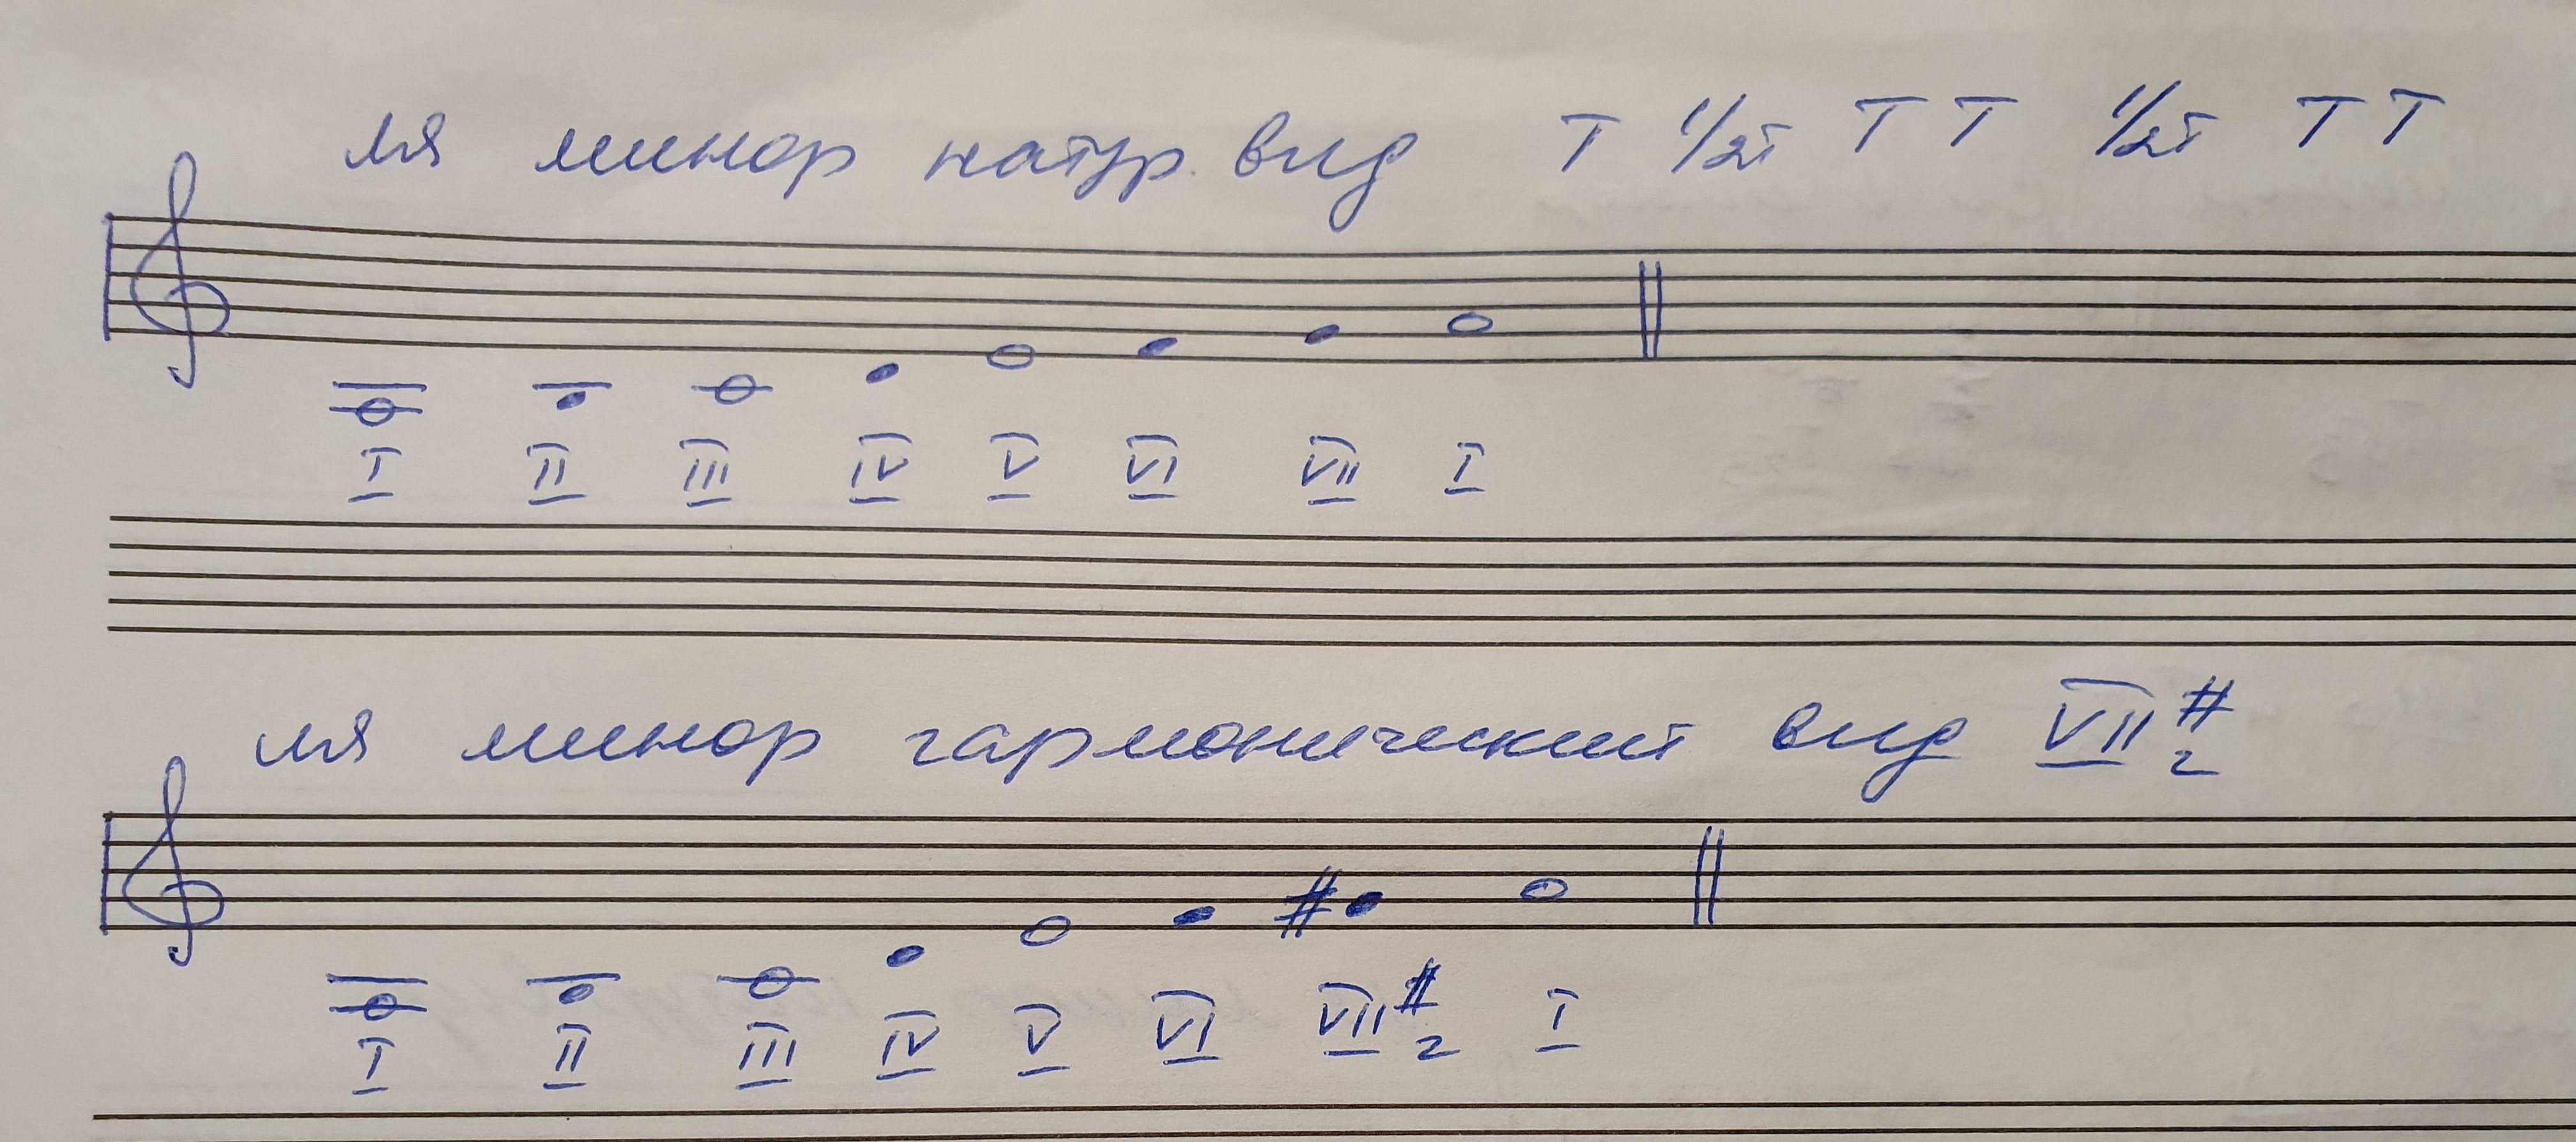 ля минор натур. вид T 1/2т T T 1/2т T T
I II III IV V VI VII I
ля минор гармонический вид VII # г
I II III IV V VI VII # г I